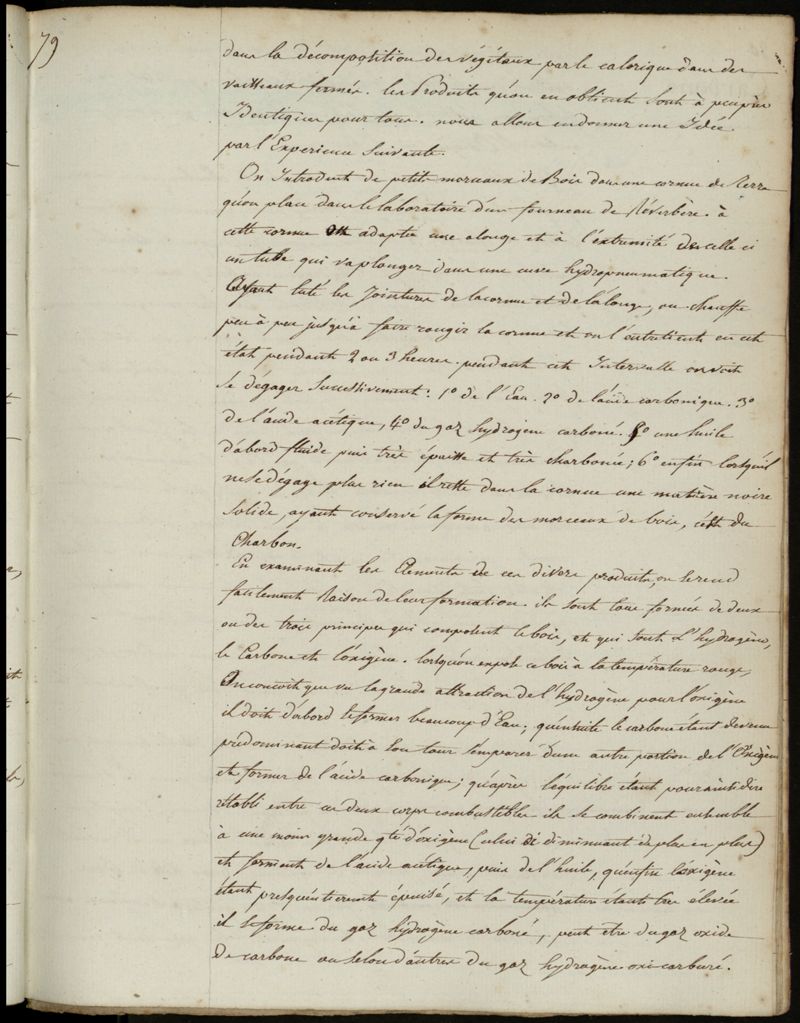 79
dans la décomposition des végétaux par le calorique dans des
vaisseaux fermés. les Produits qu'on en obtient sont à peuprès
Identiques pour tous. nous allons en donner une Idée
par l'Experience suivante.
On Introduit de petits morceaux de Bois dans une cornue de Verre
qu'on place dans le laboratoire d'un fourneau de Réverbère. à
cette cornue on adapte une alonge et à l'extremité de celle ci
un tube qui va plonger dans une cuve hydropneumatique.
Ayant luté les Jointures de la cornue et de l'alonge, on chauffe
peu à peu jusqu'à faire rougir la cornue et on l'entretient en cet
état pendant 2 ou 3 heures. pendant cet Intervalle on voit
se dégager successivement: 1º de l'Eau. 2º de l'acide carbonique. 3º
de l'acide acétique, 4º du gaz hydrogène carboné. 5º une huile
d'abord fluide puis très épaisse et très charbonée; 6º enfin lorsqu'il
ne se dégage plus rien il reste dans la cornue une matière noire
solide, ayant conservé la forme des morceaux de bois, c'est du
Charbon.
En examinant les Elements de ces divers produits, on se rend
facilement Raison de leur formation. ils sont tous formés de deux
ou des trois principes qui composent le bois, et qui sont L'hydrogène,
le Carbone et l'oxigène. lorsqu'on expose ce bois à la température rouge,
On conçoit que vu la grande attraction de l'hydrogène pour l'oxigène
il doit d'abord se former beaucoup d'Eau; qu'ensuite le carbone étant devenu
prédominant doit à son tour s'emparer d'une autre portion de l'Oxigène
et former de l'acide carbonique; qu'après l'équilibre étant pour ainsi dire
rétabli entre ces deux corps combustibles ils se combinent ensemble
à une moins grande qté d'oxigène (celui ci diminuant de plus en plus)
et forment de l'acide acétique, puis de l'huile, qu'enfin l'oxigène
étant presqu'entierement épuisé, et la température étant très élevée
il se forme du gaz hydrogène carboné, peut etre du gaz oxide
de carbone ou selon d'autres du gaz hydrogène oxi carburé.